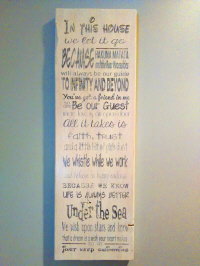 In This House
we let it go
BECAUSE HAKUNA MATATA
will always be our guide
TO INFINITY AND BEYOND
You've got a friend in me
Be our Guest
All it takes is
faith, trust
and a little bit of pixie dust
We whistle while we work
BECAUSE WE KNOW
LIFE IS ALWAYS BETTER
Under the Sea
We wish upon stars and know
that a dream is a wish your heart makes
Just keep swimming